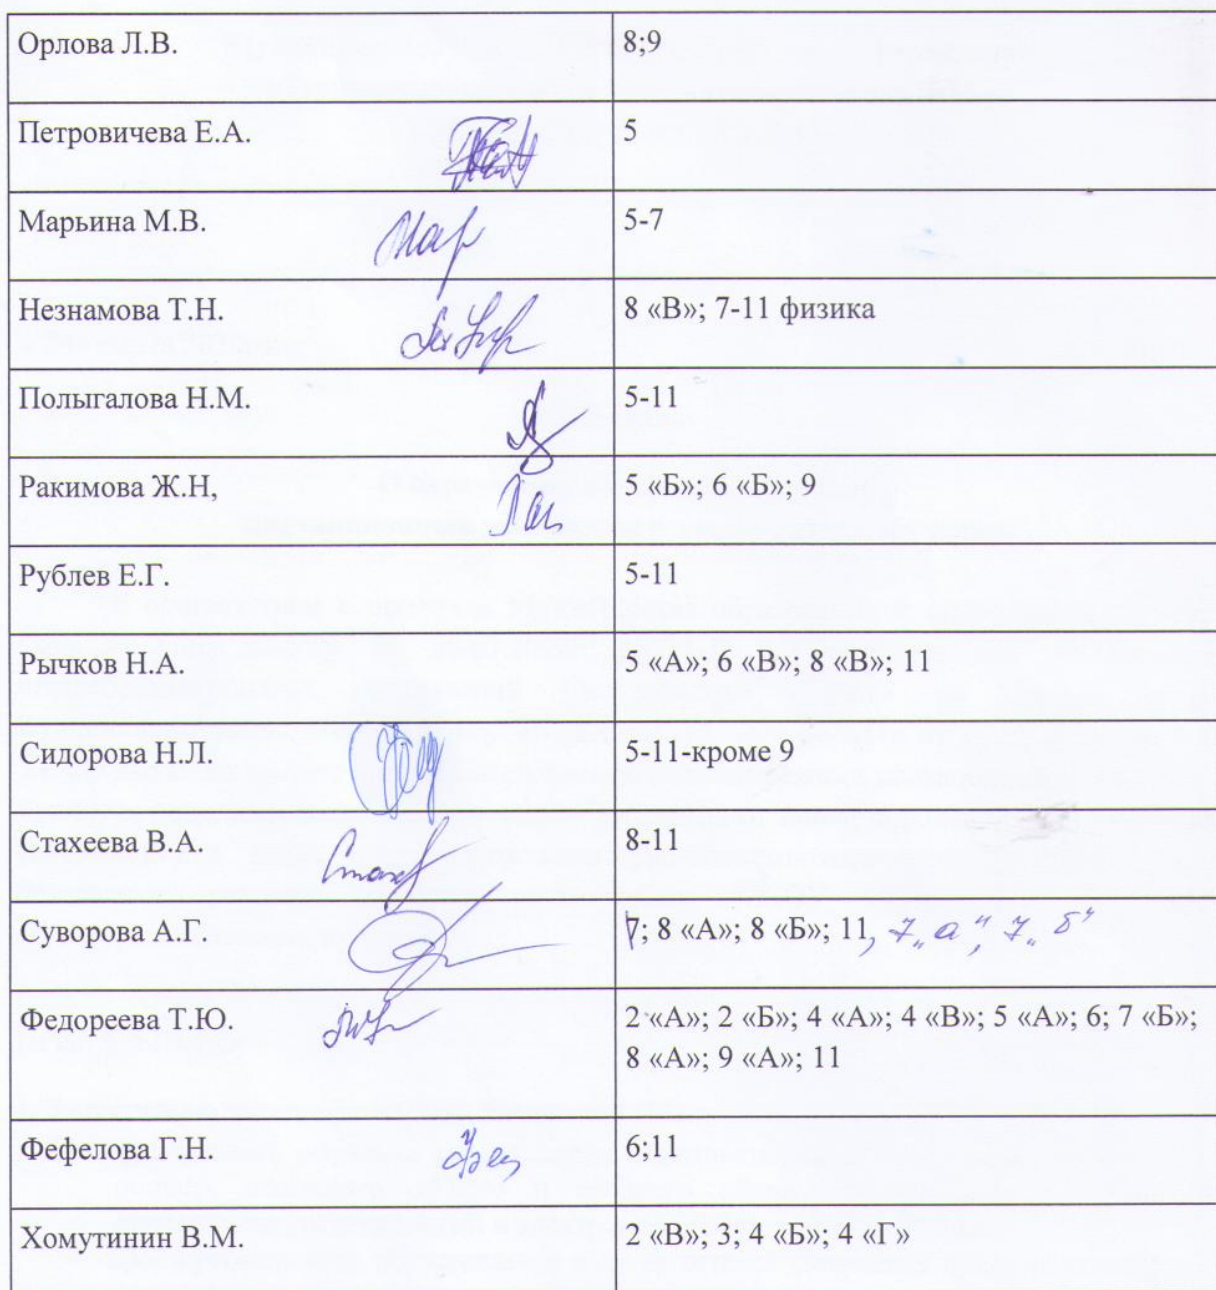 Орлова Л.В. 8;9
Петровичева Е.А. 5
Марьина М.В. 5-7
Незнамова Т.Н. 8 «В»; 7-11 физика
Полыгалова Н.М. 5-11
Ракимова Ж.Н, 5 «Б»; 6 «Б»; 9
Рублев Е.Г. 5-11
Рычков Н.А. 5 «А»; 6 «В»; 8 «В»; 11
Сидорова Н.Л. 5-11-кроме 9
Стахеева В.А. 8-11
Суворова А.Г. 7; 8 «А»; 8 «Б»; 11, 7 „а", 7 „б"
Федореева Т.Ю. 2 «А»; 2 «Б»; 4 «А»; 4 «В»; 5 «А»; 6; 7 «Б»;
8 «А»; 9 «А»; 11
Фефелова Г.Н. 6;11
Хомутинин В.М. 2 «В»; 3; 4 «Б»; 4 «Г»